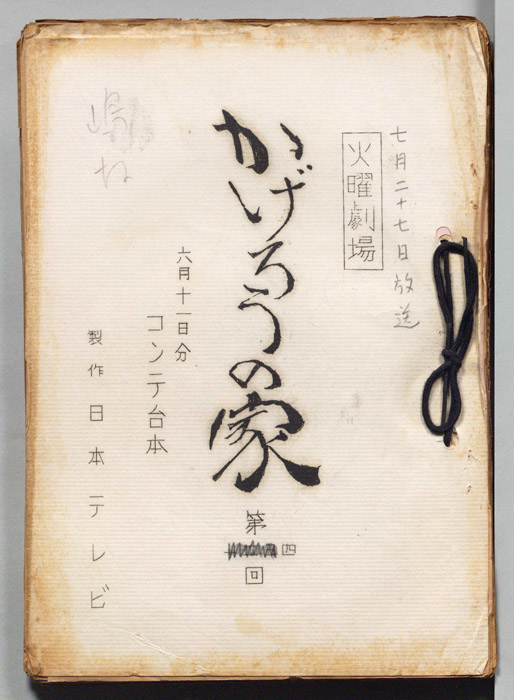 七月二十七日放送
火曜劇場
かげろうの家
第
四
回
六月十一日分
コンテ台本
製作 日本テレビ
嶋